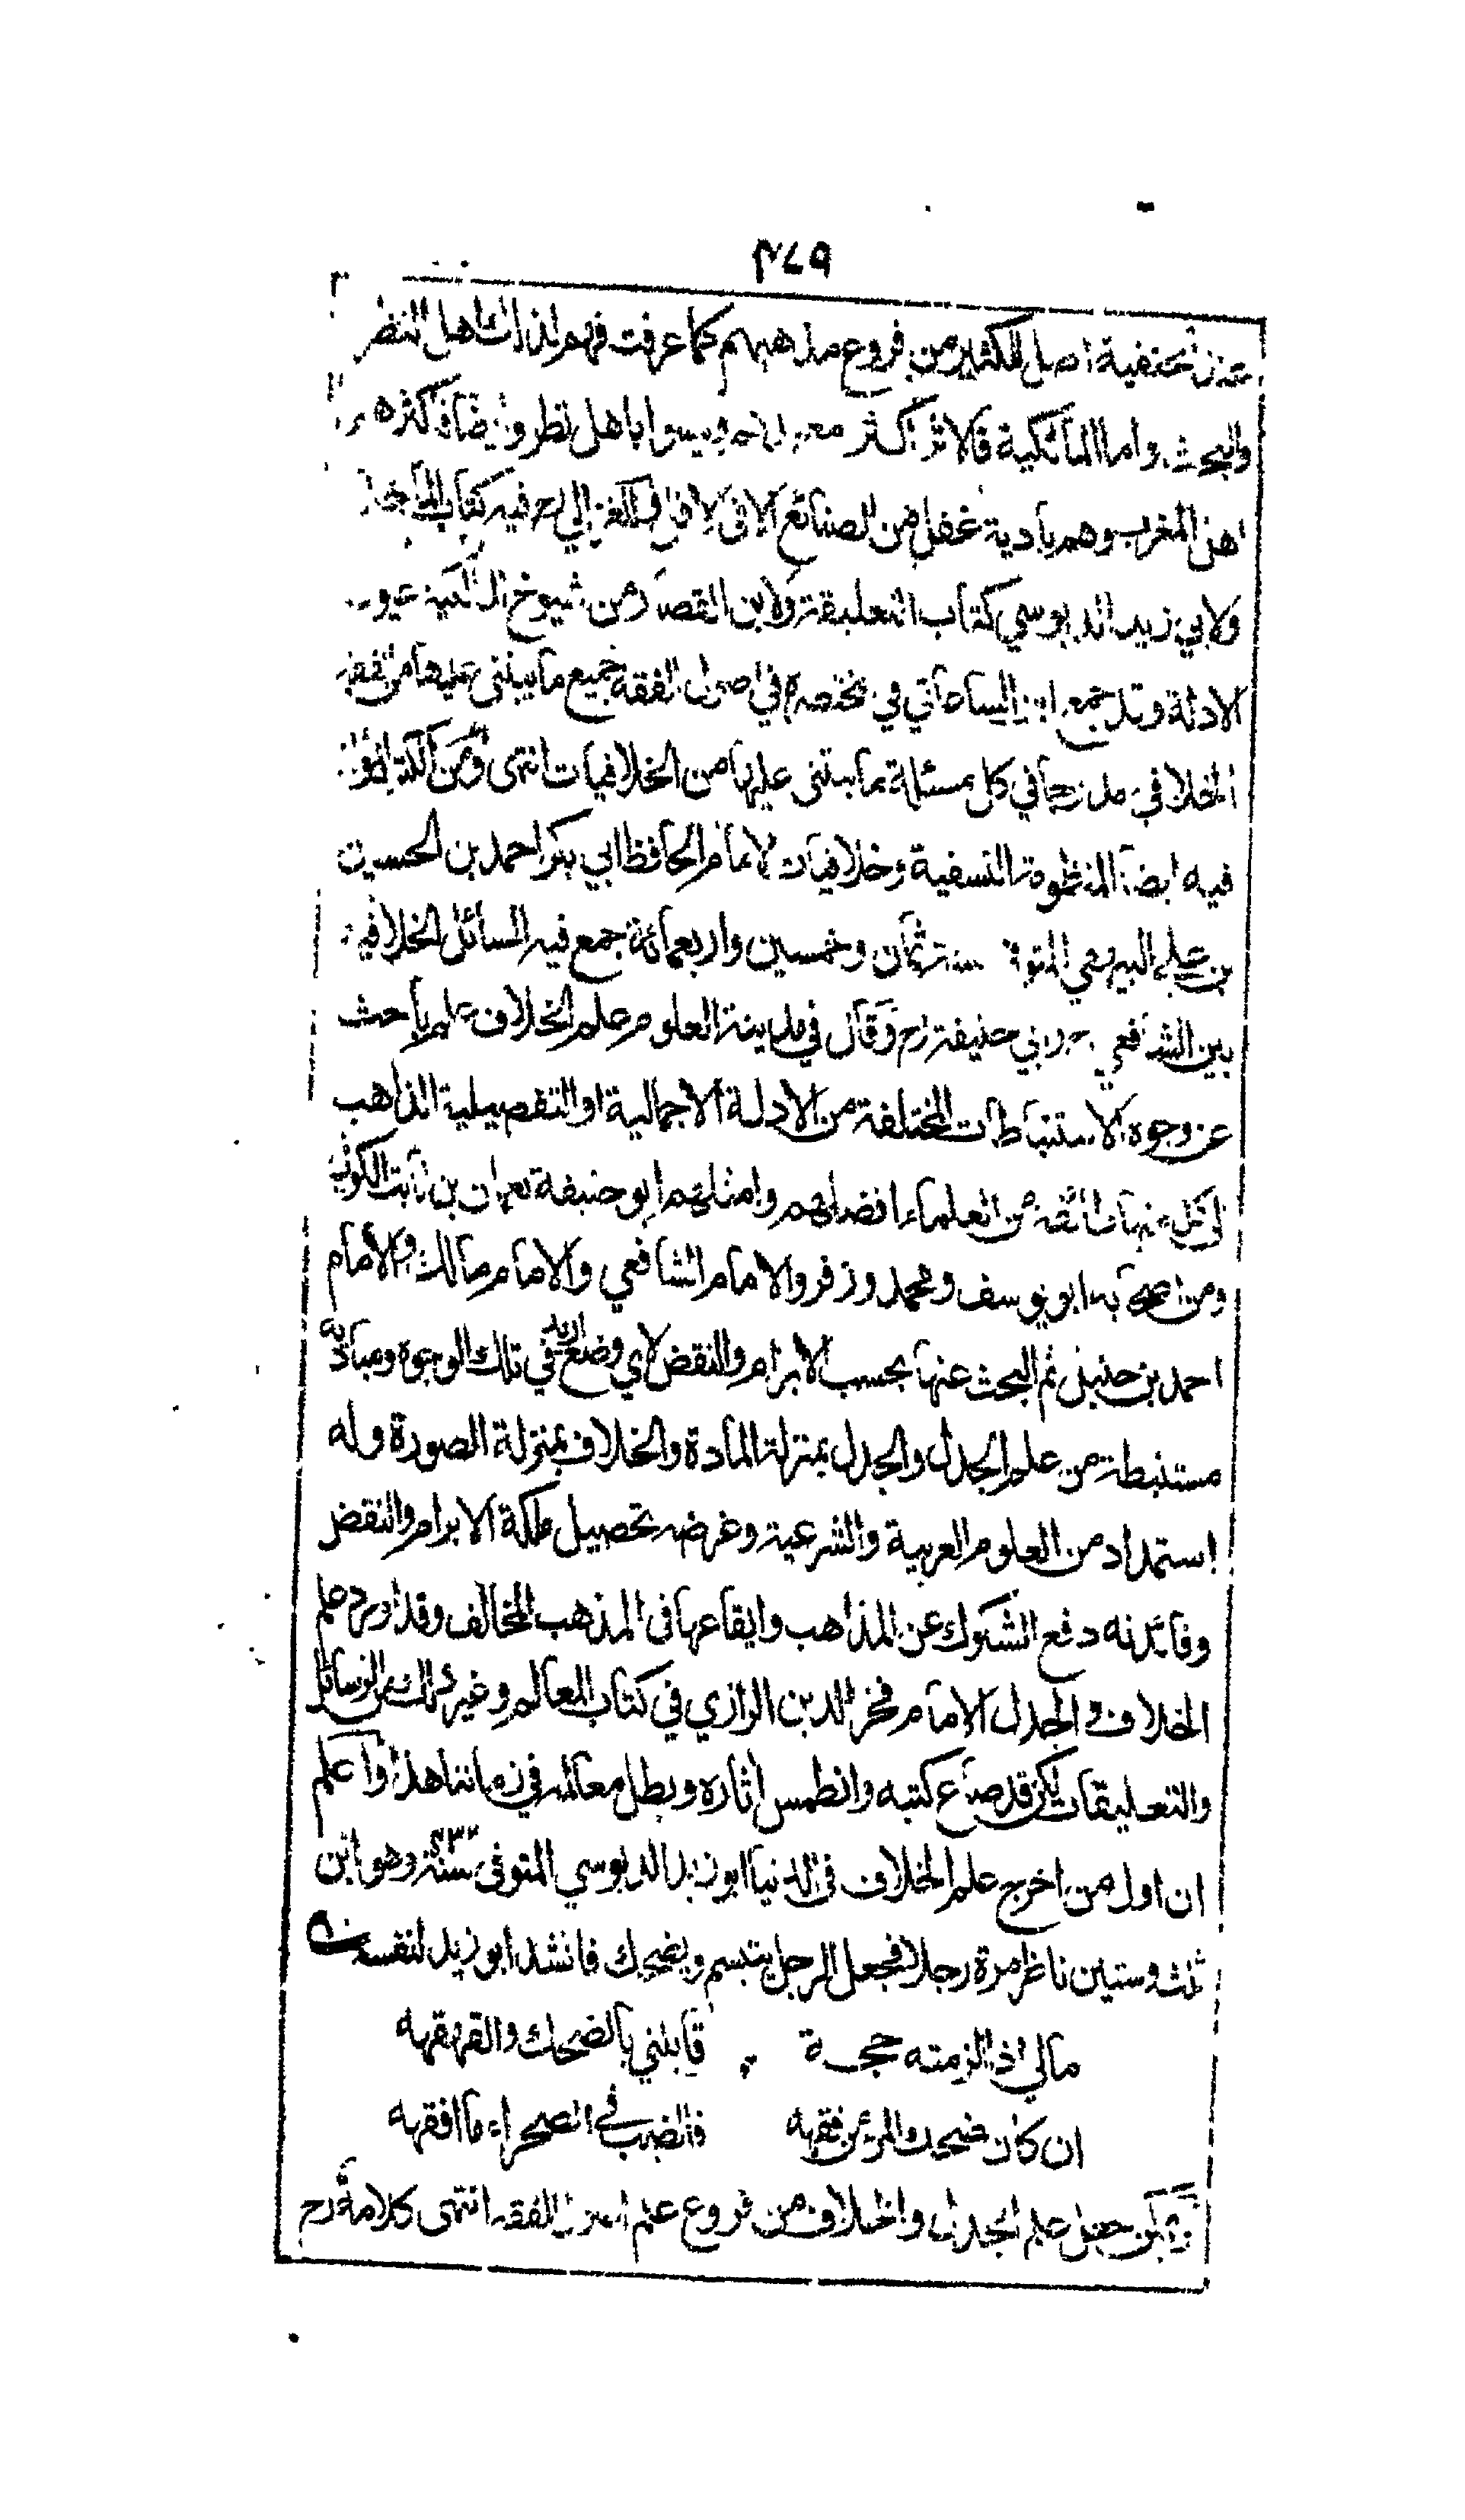 ٤٧٩
عند الحنفية اصل للكثير من فروع مذهبهم كما عرفت فهم لذلك اهل النظر
والبحث واما المالكية فالاثر اكثر معتمدهم وليسوا باهل نظر وايضا فاكثرهم
اهل المغرب وهم بادية غفل من الصنائع الا في الاقل وللغزالي رح فيه كتاب المأخذ
ولابي زيد الدبوسي كتاب التعليقة ولابن القصار من شيوخ المالكية عيون
الادلة وقد جمع ابن الساعاتي في مختصره في اصول الفقه جميع ما يبتنى عليها من الفقه
الخلافي مدرجا في كل مسئلة ما يبتنى عليها من الخلافيات انتهى ومن الكتب المؤلفة
فيه ايضا المنظومة النسفية وخلافيات الامام الحافظ ابي بكر احمد بن الحسين
بن علي البيهقي المتوفى سنة ثمان وخمسين واربعمائة جمع فيه المسائل الخلافية
بين الشافعي وابي حنيفة رح وقال في مدينة العلوم علم الخلاف علم باحث
عن وجوه الاستنباطات المختلفة من الادلة الاجمالية او التفصيلية الذاهب
الى كل منها طائفة من العلماء افضلهم وامثلهم ابو حنيفة نعمان بن ثابت الكوفي
ومن اصحابه ابو يوسف ومحمد وزفر والامام الشافعي والامام مالك والامام
احمد بن حنبل ثم البحث عنها بحسب الابرام والنقض لاي وضع اريد في تلك الوجوه ومباديه
مستنبطة من علم الجدل والجدل بمنزلة المادة والخلاف بمنزلة الصورة وله
استمداد من العلوم العربية والشرعية وغرضه تحصيل ملكة الابرام والنقض
وفائدته دفع الشكوك عن المذاهب وايقاعها في المذهب المخالف وقد اورد علم
الخلاف والجدل الامام فخر الدين الرازي في كتاب المعالم وغير ذلك من الرسائل
والتعليقات لكن قد ضاع كتبه وانطمس اثاره وبطل معالمه في زماننا هذا واعلم
ان اول من اخرج علم الخلاف في الدنيا ابو زيد الدبوسي المتوفى سنة ٤٣٢ وهو ابن
ثلث وستين ناظر مرة رجلا فجعل الرجل يتبسم ويضحك فانشد ابو زيد لنفسه
مالي اذا الزمته حجة قابلني بالضحك والقهقهه
ان كان ضحك المرء من فقهه فالضب في الصحراء ما افقهه
ويمكن جعل علم الجدل والخلاف من فروع علم اصول الفقه انتهى كلامه رح